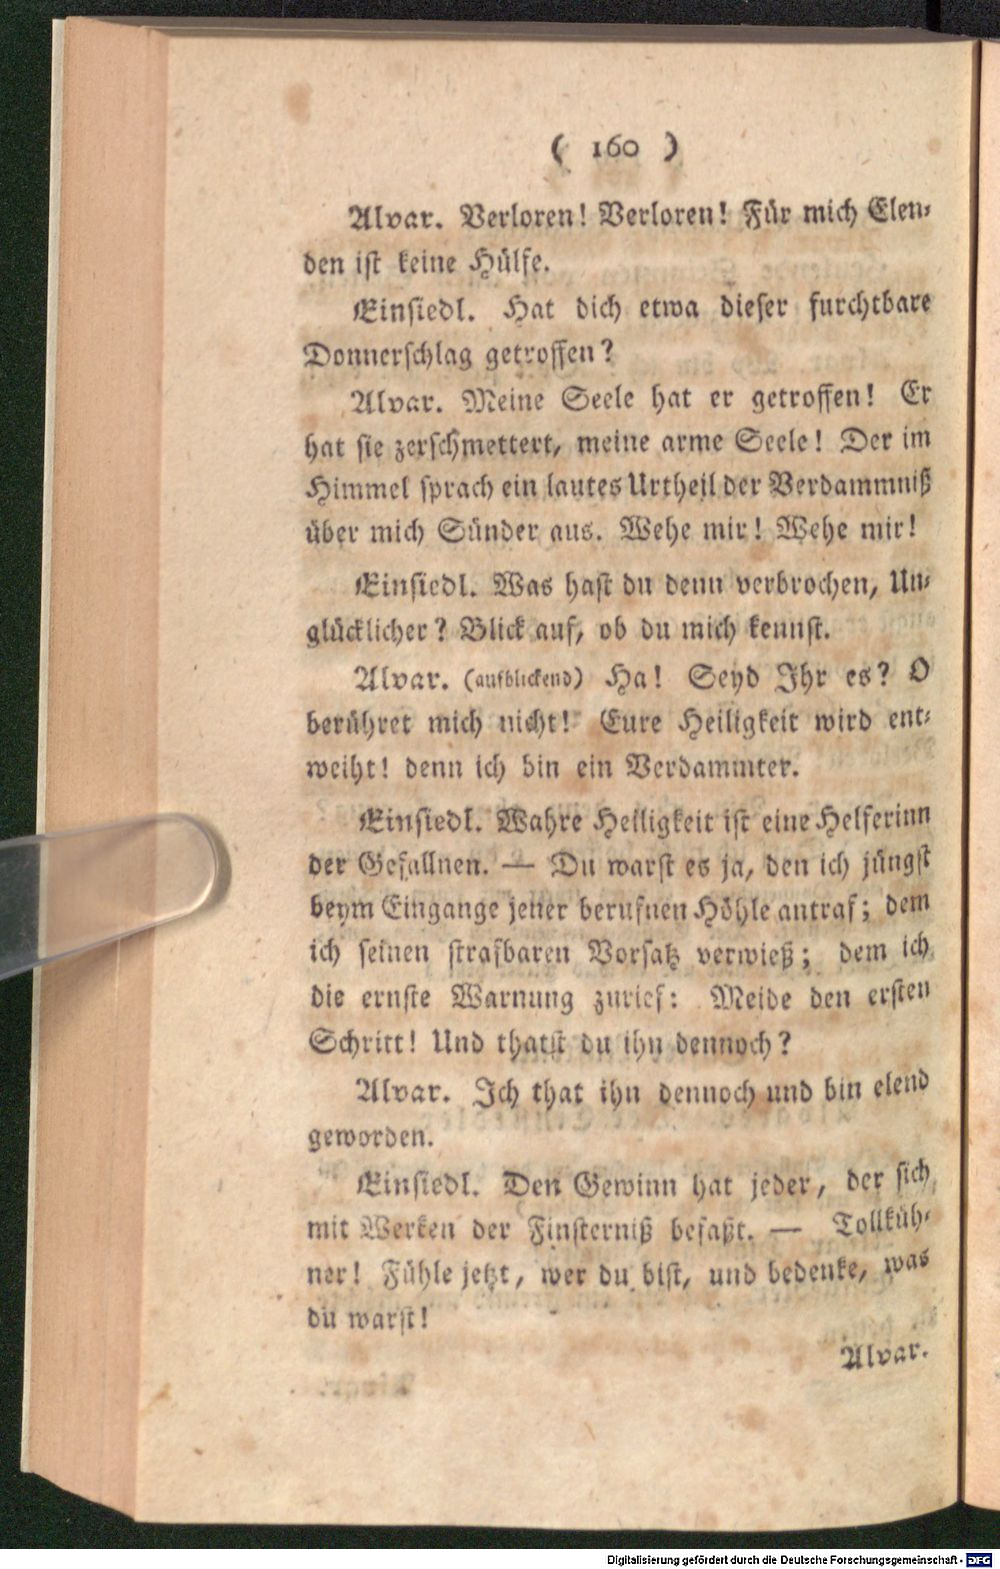 ( 160 )
Alvar. Verloren! Verloren! Für mich Elen-
den ist keine Hülfe.
Einsiedl. Hat dich etwa dieser furchtbare
Donnerschlag getroffen?
Alvar. Meine Seele hat er getroffen! Er
hat sie zerschmettert, meine arme Seele! Der im
Himmel sprach ein lautes Urtheil der Verdammniß
über mich Sünder aus. Wehe mir! Wehe mir!
Einsiedl. Was hast du denn verbrochen, Un-
glücklicher? Blick auf, ob du mich kennst.
Alvar. (aufblickend) Ha! Seyd Ihr es? O
berühret mich nicht! Eure Heiligkeit wird ent-
weiht! denn ich bin ein Verdammter.
Einsiedl. Wahre Heiligkeit ist eine Helferinn
der Gefallnen. — Du warst es ja, den ich jüngst
beym Eingange jener berufnen Höhle antraf; dem
ich seinen strafbaren Vorsatz verwieß; dem ich
die ernste Warnung zurief: Meide den ersten
Schritt! Und thatst du ihn dennoch?
Alvar. Ich that ihn dennoch und bin elend
geworden.
Einsiedl. Den Gewinn hat jeder, der sich
mit Werken der Finsterniß befaßt. — Tollküh-
ner! Fühle jetzt, wer du bist, und bedenke, was
du warst!
Alvar.
Digitalisierung gefördert durch die Deutsche Forschungsgemeinschaft - DFG